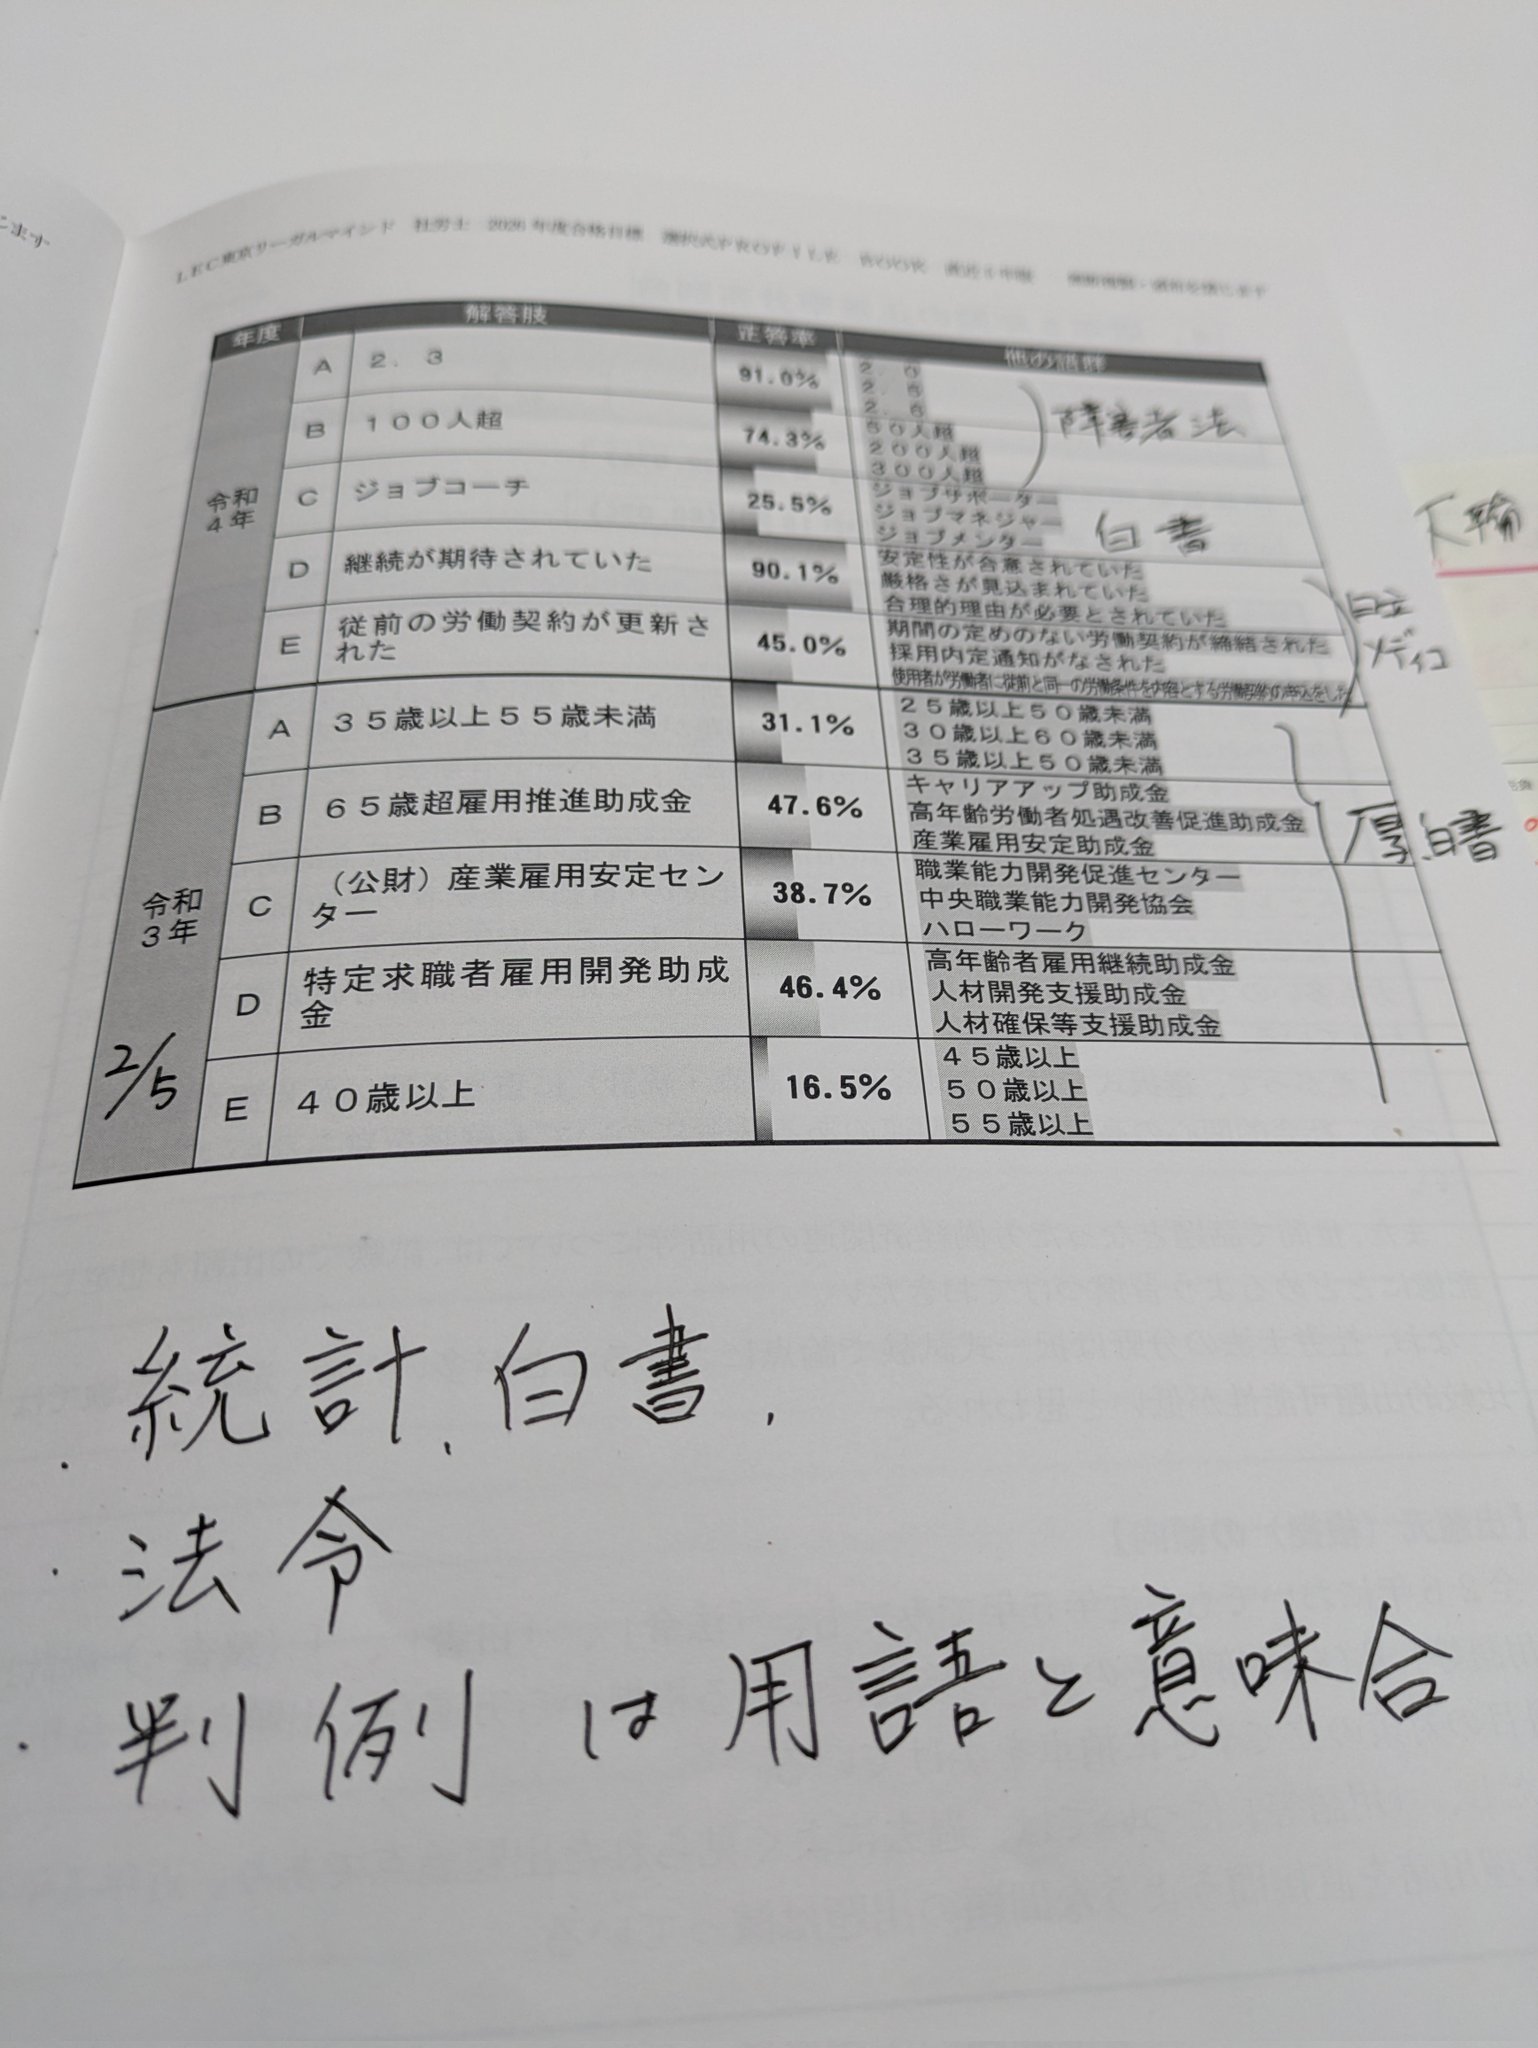 します
LEC東京リーガルマインド 社労士 2026年度合格目標 選択式PROFILE BOOK 直近
年度 解答肢 正答率 他の語群
令和4年
A 2．3 91.0%
2．0
2．5
2．6
B 100人超 74.3%
50人超
200人超
300人超
障害者法
C ジョブコーチ 25.5%
ジョブサポーター
ジョブマネジャー
ジョブメンター
白書
D 継続が期待されていた 90.1%
安定性が合意されていた
厳格さが見込まれていた
合理的理由が必要とされていた
E 従前の労働契約が更新さ
れた
45.0%
期間の定めのない労働契約が締結された
採用内定通知がなされた
使用者が労働者に従前と同一の労働条件を内容とする労働契約の申込をした
日立
メディコ
令和3年
A 35歳以上55歳未満 31.1%
25歳以上50歳未満
30歳以上60歳未満
35歳以上50歳未満
B 65歳超雇用推進助成金 47.6%
キャリアアップ助成金
高年齢労働者処遇改善促進助成金
産業雇用安定助成金
厚白書
C （公財）産業雇用安定セン
ター
38.7%
職業能力開発促進センター
中央職業能力開発協会
ハローワーク
D 特定求職者雇用開発助成
金
46.4%
高年齢者雇用継続助成金
人材開発支援助成金
人材確保等支援助成金
2/5
E 40歳以上 16.5%
45歳以上
50歳以上
55歳以上
・統計、白書、
・法令
・判例は用語と意味合